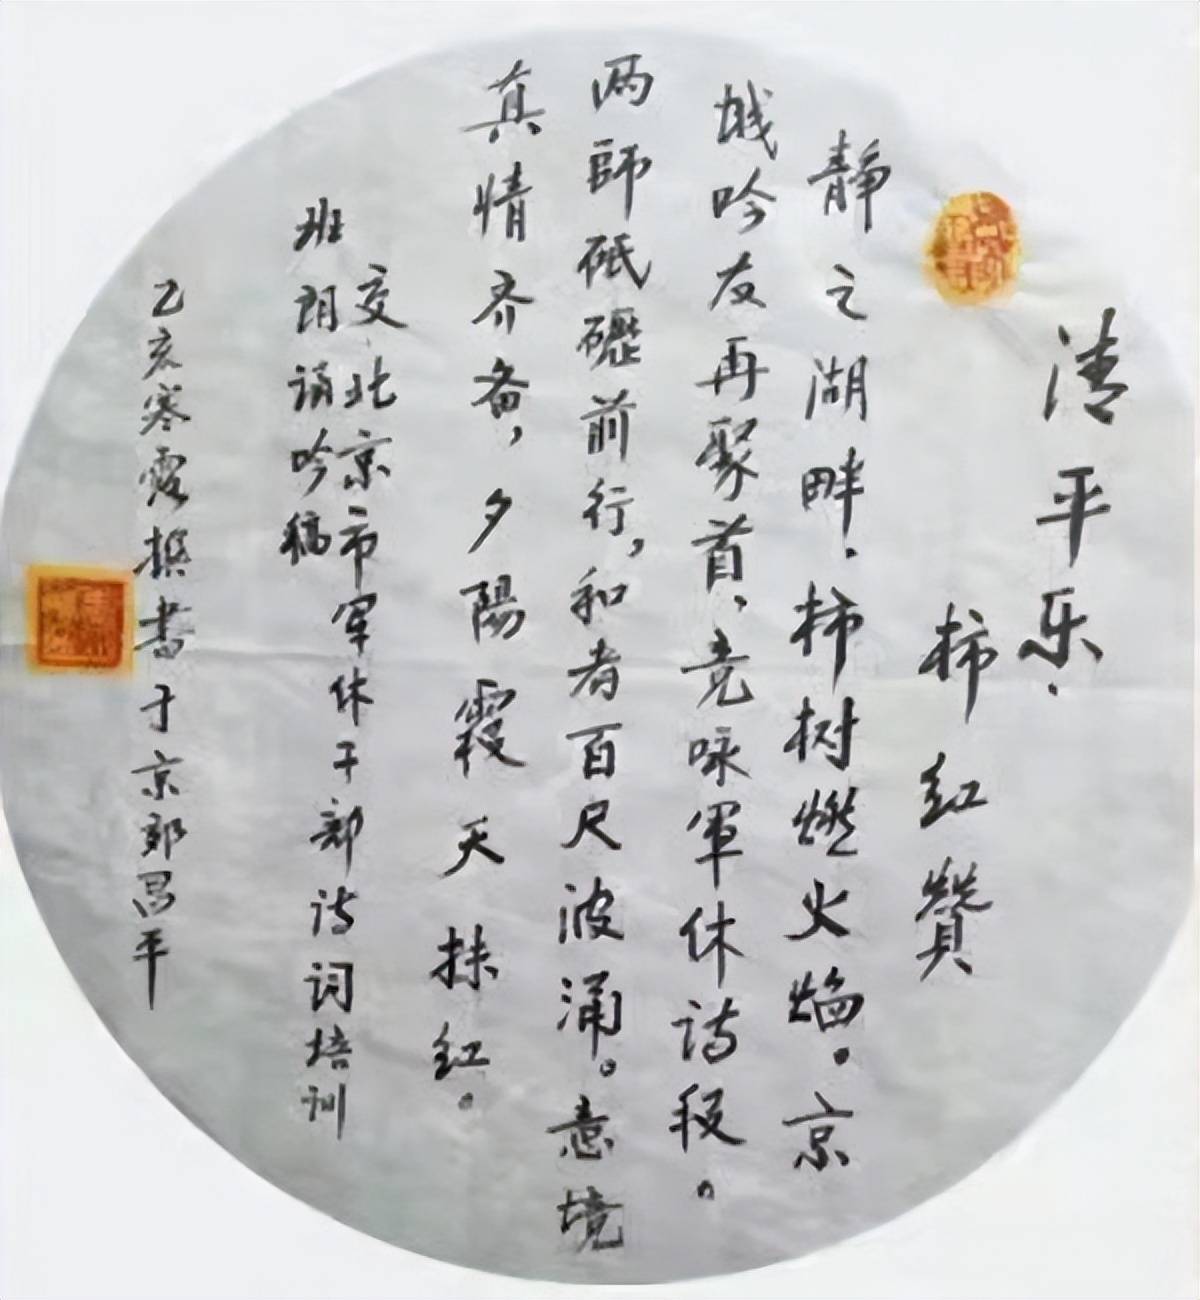 清平乐·
柿红赞
静之湖畔，柿树燃火焰。京
城吟友再聚首，竞咏軍休诗段。
两師砥礪前行，和者百尺波涌。意境
真情齐备，夕陽霞天抹红。
交北京市军休干部诗词培训
班朗诵吟稿
乙亥寒露撰書于京郊昌平